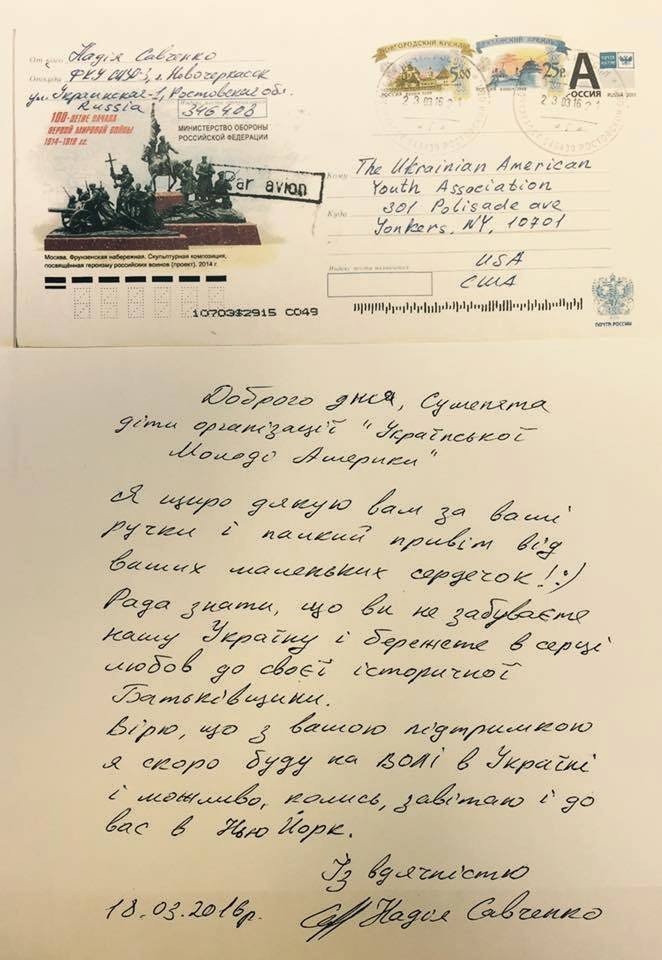 От кого Надія Савченко
Откуда ФКУ СИЗО-3, г. Новочеркасск
ул. Украинская-1, Ростовская обл.
Russia 346408
100-ЛЕТИЕ НАЧАЛА
ПЕРВОЙ МИРОВОЙ ВОЙНЫ
1914–1918 гг.
МИНИСТЕРСТВО ОБОРОНЫ
РОССИЙСКОЙ ФЕДЕРАЦИИ
Par avion
Москва. Фрунзенская набережная. Скульптурная композиция,
посвящённая героизму российских воинов (проект). 2014 г.
НОВГОРОДСКИЙ КРЕМЛЬ
5,00
25р.
А
РОССИЯ
2 3 03 16
Кому The Ukrainian American
Youth Association
Куда 301 Polisade ave
Yonkers, NY, 10701
USA
США
Индекс места назначения
ПОЧТА РОССИИ
Доброго дня, Суменята
діти організації "Української
Молоді Америки"
Я щиро дякую вам за ваші
ручки і палкий привіт від
ваших маленьких сердечок! :)
Рада знати, що ви не забуваєте
нашу Україну і бережете в серці
любов до своєї історичної
Батьківщини.
Вірю, що з вашою підтримкою
я скоро буду на ВОЛІ в Україні
і можливо, колись, завітаю і до
вас в Нью Йорк.
Із вдячністю
18.03.2016р. Надія Савченко